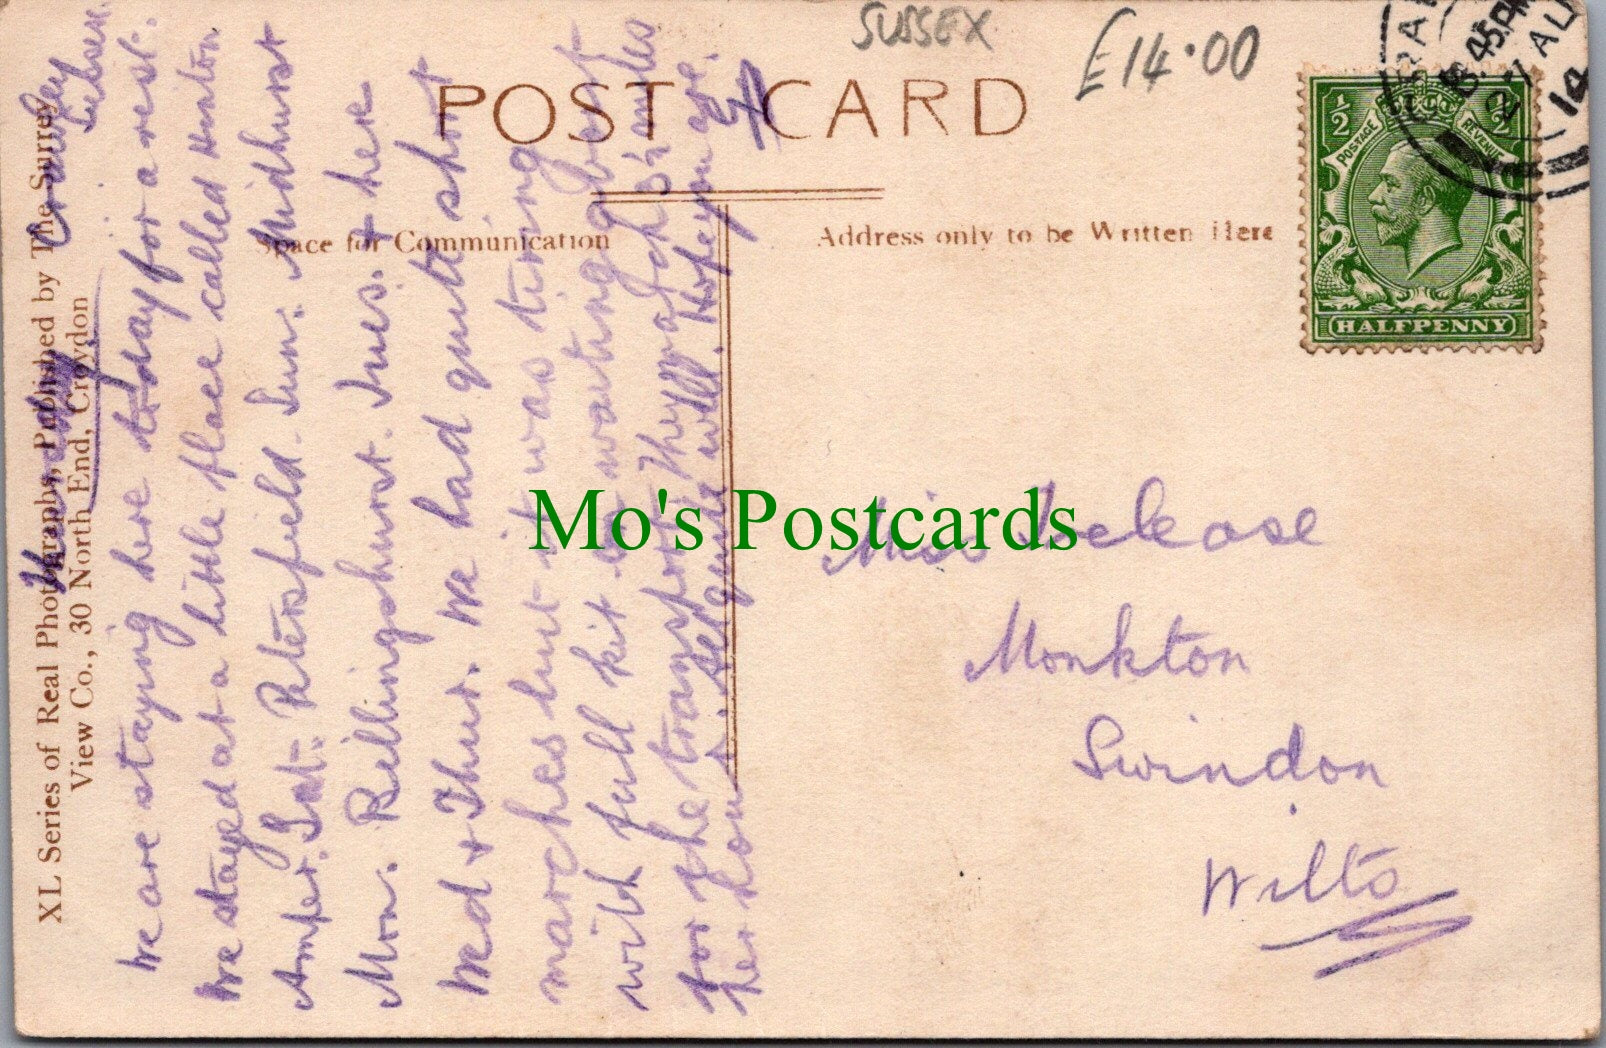 SUSSEX
£14.00
POST CARD
Space for Communication
Address only to be Written Here
XL Series of Real Photographs, Published by The Surrey
View Co., 30 North End, Croydon
CRAWLEY
8.45PM
2 AU
14
½ ½
POSTAGE REVENUE
HALFPENNY
Crawley
Sussex
Thursday
We are staying here today for a rest.
We stayed at a little place called Hinton
Amper. Sat. Petersfield. Sun. Midhurst
Mon. Billingshurst. Tues. + here
Wed + Thur. We had quite short
marches but it was tiring
with full kit + waiting
for the transport. They
her home. Hope you are.
Miss
Monkton
Swindon
Wilts
Mo's Postcards